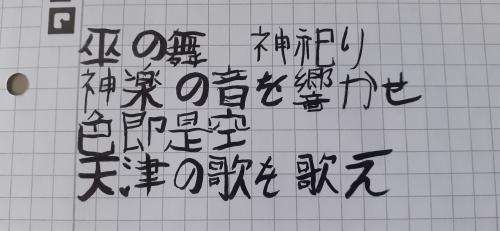 巫の舞 神祀り
神楽の音を響かせ
色即是空
天津の歌を歌え